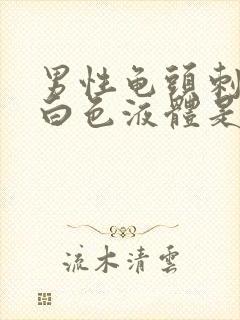 男性龟頭刺
白色液體是
流木清雲